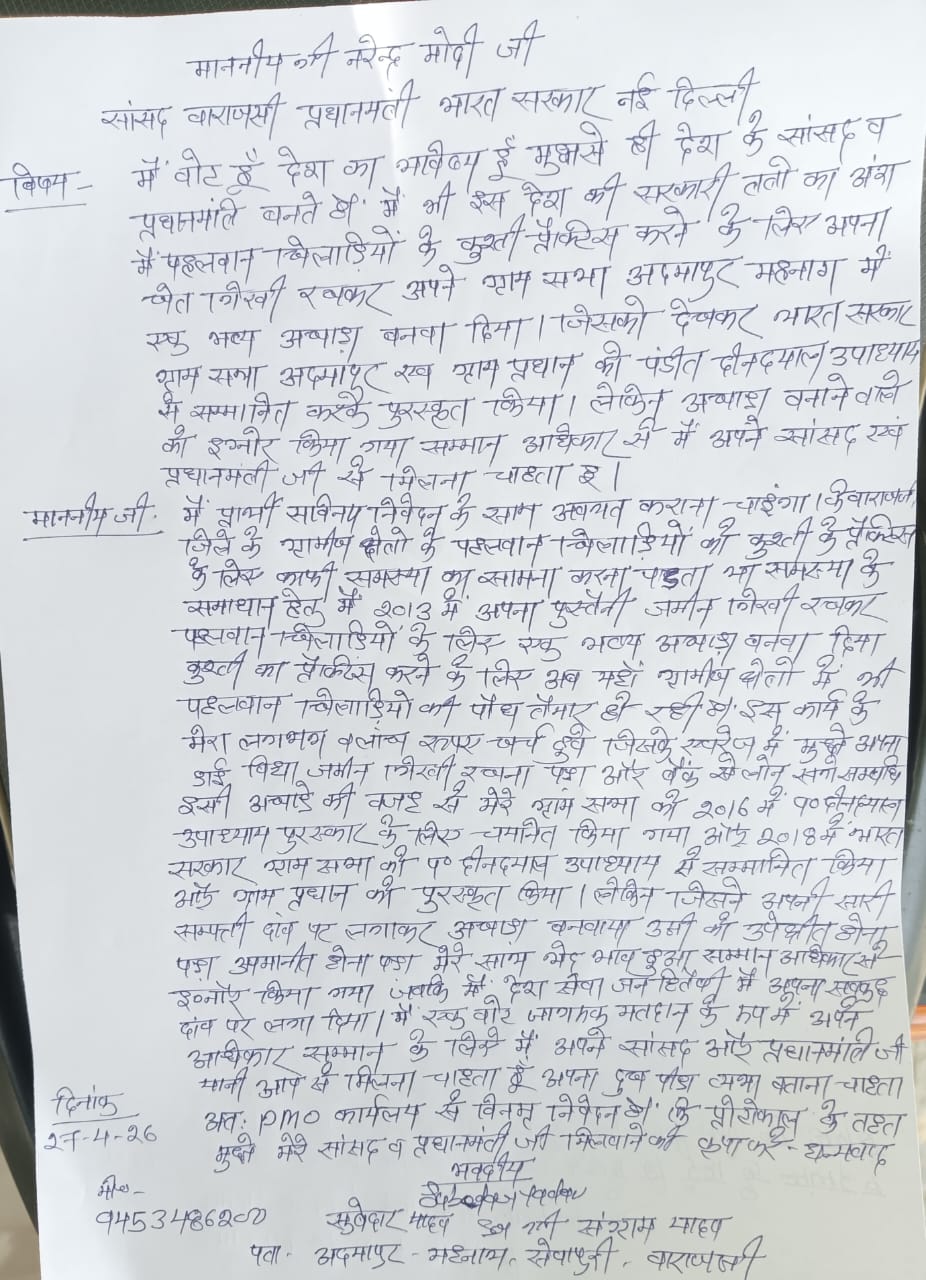 माननीय श्री नरेन्द्र मोदी जी
सांसद वाराणसी प्रधानमंत्री भारत सरकार नई दिल्ली
विषय - मैं वोट हूँ देश का भविष्य हूँ मुझसे ही देश के सांसद व
प्रधानमंत्रि बनते हैं मैं भी इस देश की सरकारी का अंश
मैं पहलवान खिलाड़ियों के कुश्ती प्रैक्टिस करने के लिए अपना
खेत गिरवी रखकर अपने ग्राम सभा अदमापुर महनाग में
एक भव्य अखाड़ा बनवा दिया। जिसको देखकर भारत सरकार
ग्राम सभा अदमापुर एवं ग्राम प्रधान को पंडीत दीनदयाल उपाध्याय
से सम्मानित करके पुरस्कृत किया। लेकिन अखाड़ा बनाने वाले
को इग्नोर किया गया सम्मान अधिकार से मैं अपने सांसद एवं
प्रधानमंत्री जी से मिलना चाहता हूं।
माननीय जी: मैं प्रार्थी सविनय निवेदन के साथ अवगत कराना चाहूंगा। कि वाराणसी
जिले के ग्रामीण क्षेत्रो के पहलवान खिलाड़ियों को कुश्ती के प्रैक्टिस
के लिए काफी समस्या का सामना करना पड़ता था समस्या के
समाधान हेतु मैं 2013 में अपना पुस्तैनी जमीन गिरवी रखकर
पहलवान खिलाड़ियों के लिए एक भव्य अखाड़ा बनवा दिया
कुश्ती का प्रैक्टिस करने के लिए अब यहाँ ग्रामीण क्षेत्रो में भी
पहलवान खिलाड़ियो की पौध तैयार हो रही है इस कार्य के
मेरा लगभग लाख रूपए खर्च हुवे जिसके एवेज में मुझे अपना
ढाई विघा जमीन गिरवी रखना पड़ा और बैंक से लोन सगे सम्बंधि
इसी अखाड़े की वजह से मेरे ग्राम सभा को 2016 में प० दीनदयाल
उपाध्याय पुरस्कार के लिए चयनित किया गया और 2018 में भारत
सरकार ग्राम सभा को प० दीनदयाल उपाध्याय से सम्मानित किया
और ग्राम प्रधान को पुरस्कृत किया। लेकिन जिसने अपनी सारी
सम्पती दांव पर लगाकर अखाड़ा बनवाया उसी को उपेक्षीत होना
पड़ा अपमानीत होना पड़ा मेरे साथ भेद भाव हुआ सम्मान अधिकार से
इग्नोर किया गया जबकि मैं देश सेवा जन हितैषी में अपना सबकुछ
दांव पर लगा दिया। मैं एक वोटर जागरूक मतदान के रूप में अपने
अधिकार सम्मान के लिये मैं अपने सांसद और प्रधानमंत्रि जी
यानी आप से मिलना चाहता हूँ अपना दुख पीड़ा व्यथा बताना चाहता
अतः PMO कार्यलय से विनम्र निवेदन है कि प्रोटोकाल के तहत
मुझे मेरे सांसद व प्रधानमंत्री जी मिलवाने की कृपा करे - धन्यवाद
दिनांक
27-4-26
भवदीय
मो०-
9453486200
सुबेदार यादव पुत्र श्री संग्राम यादव
पता - अदमापुर - महनाग, सेवापुरी, वाराणसी